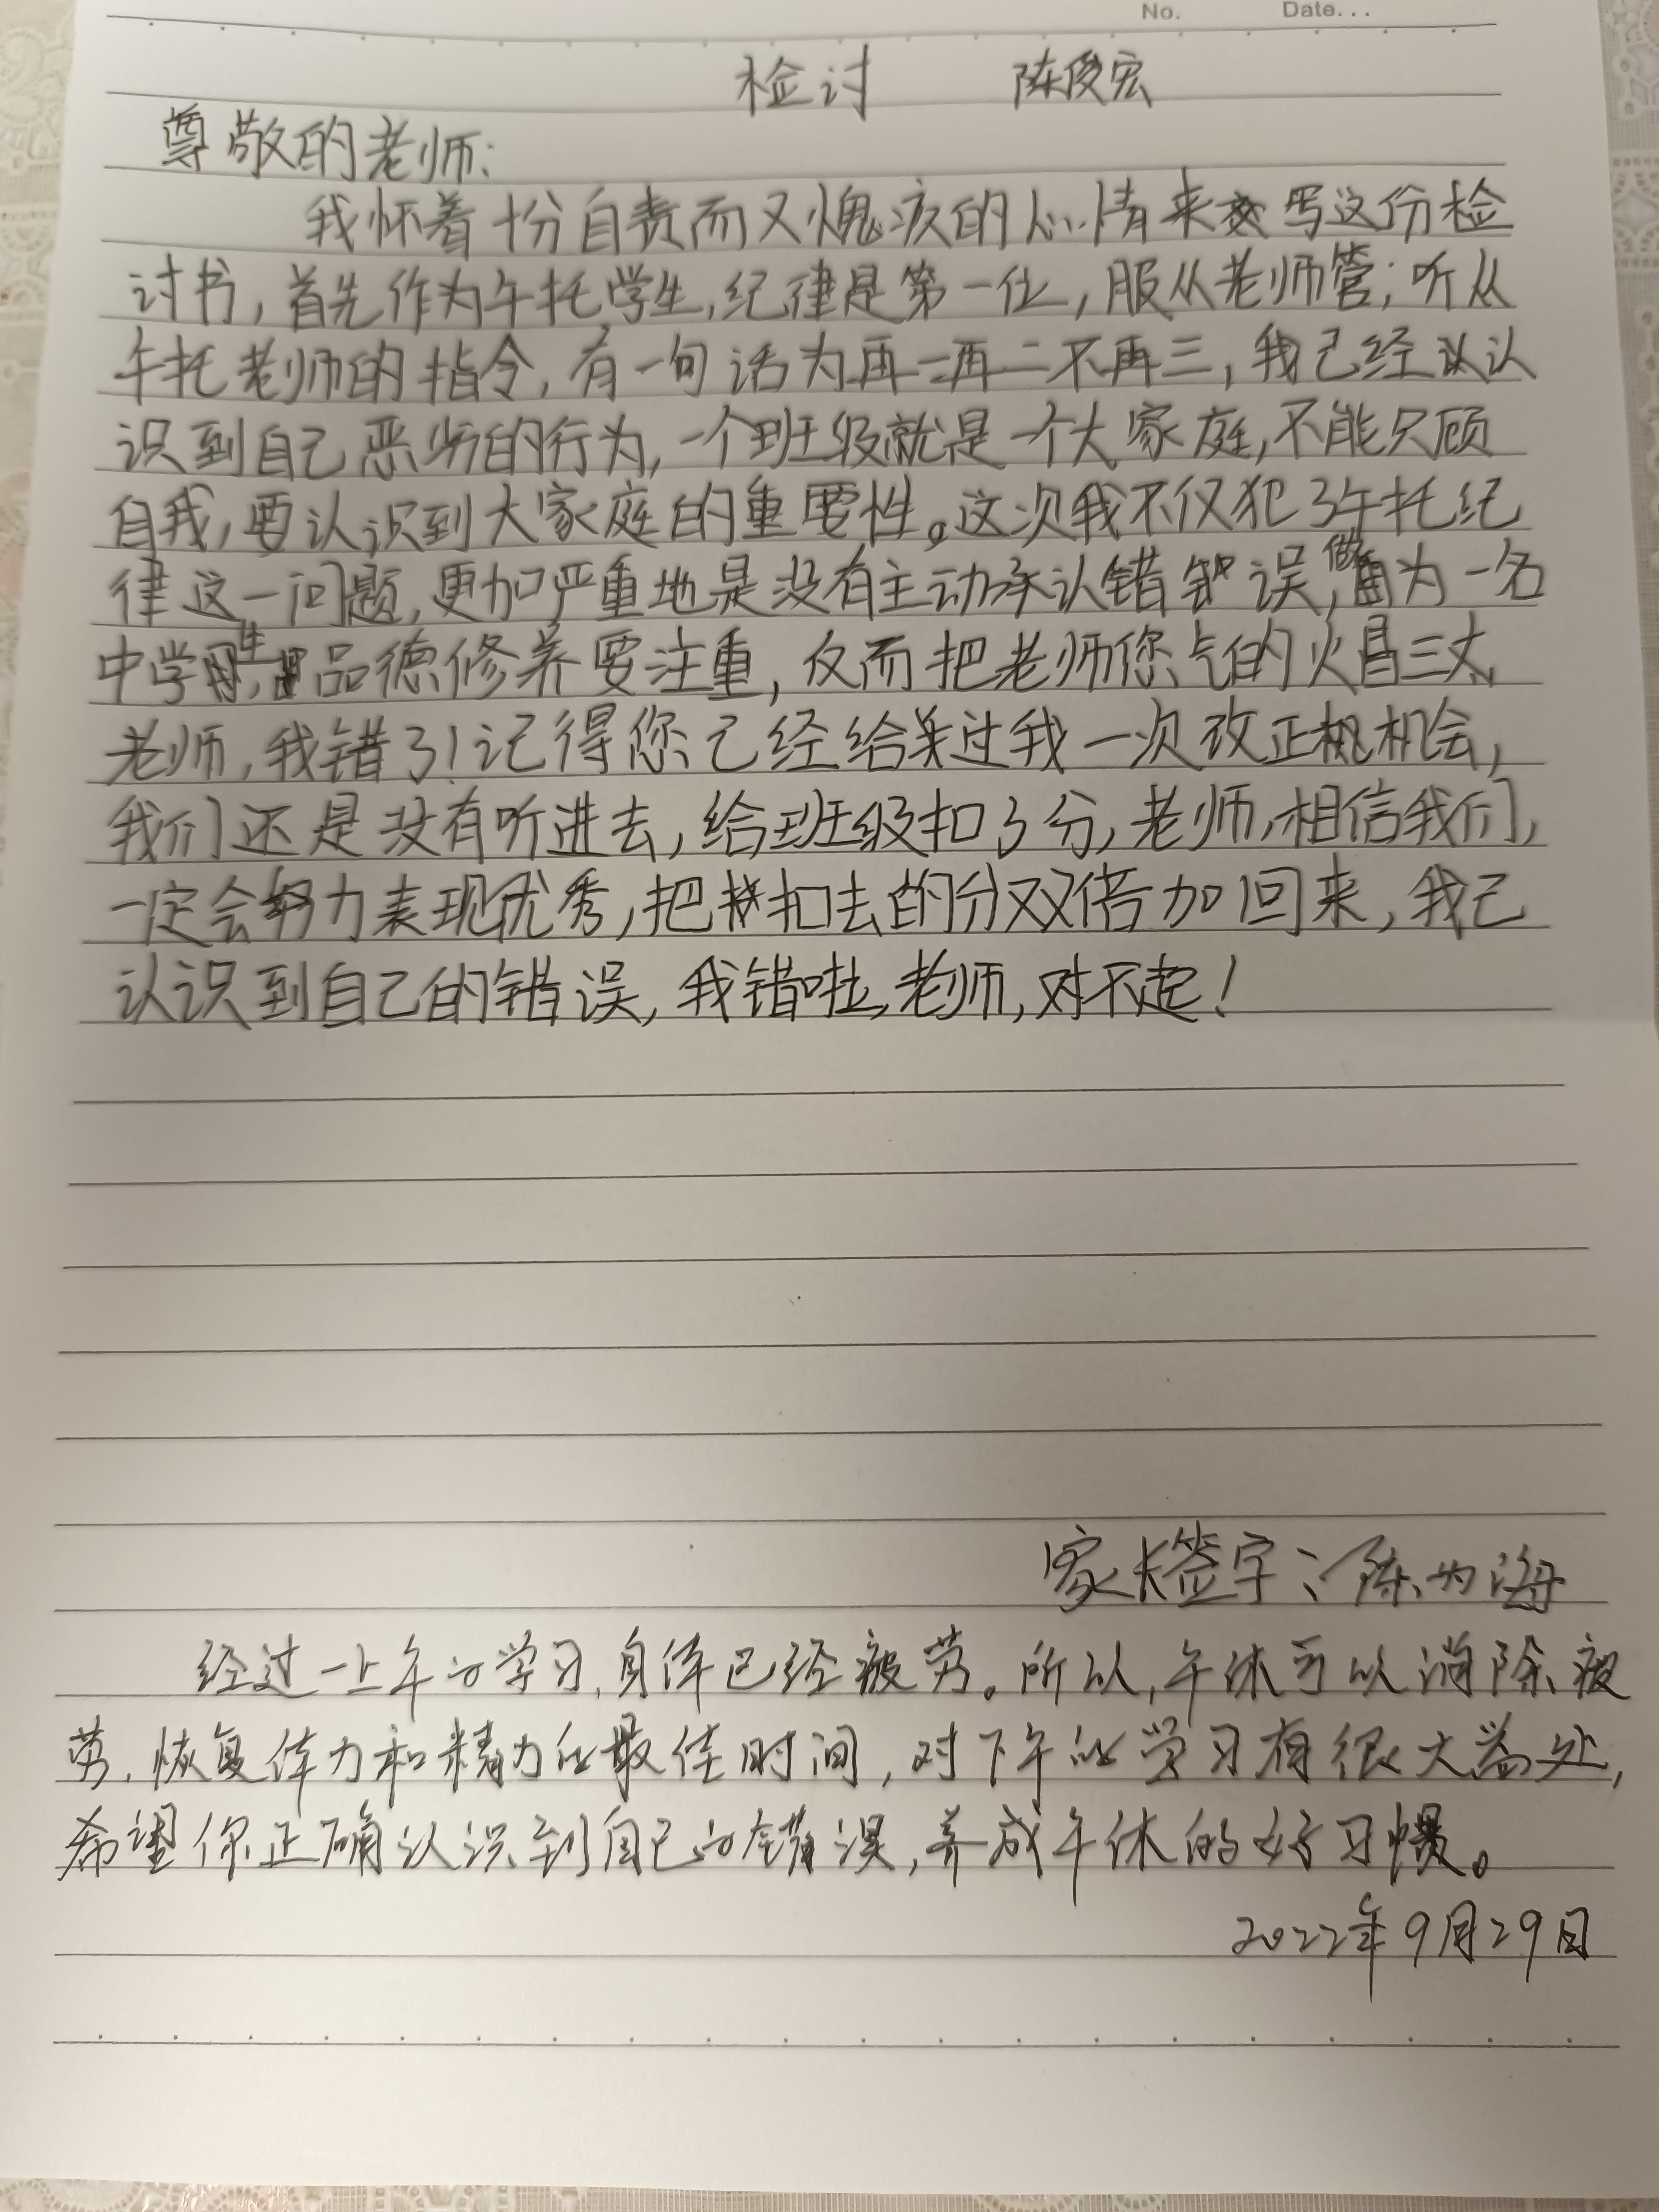 No. Date...
检讨 陈俊宏
尊敬的老师:
我怀着十份自责而又愧疚的心情来写这份检
讨书,首先作为午托学生,纪律是第一位,服从老师管;听从
午托老师的指令,有一句话为再一再二不再三,我已经认
识到自己恶劣的行为,一个班级就是一个大家庭,不能只顾
自我,要认识到大家庭的重要性。这次我不仅犯了午托纪
律这一问题,更加严重地是没有主动承认错误,做为一名
中学生,品德修养要注重,反而把老师您气的火冒三丈,
老师,我错了!记得您已经给过我一次改正机会,
我们还是没有听进去,给班级扣了分,老师,相信我们,
一定会努力表现优秀,把扣去的分双倍加回来,我已
认识到自己的错误,我错啦,老师,对不起!
家长签字:陈为海
经过一上午的学习,身体已经疲劳。所以,午休可以消除疲
劳,恢复体力和精力的最佳时间,对下午的学习有很大益处,
希望你正确认识到自己的错误,养成午休的好习惯。
2022年9月29日